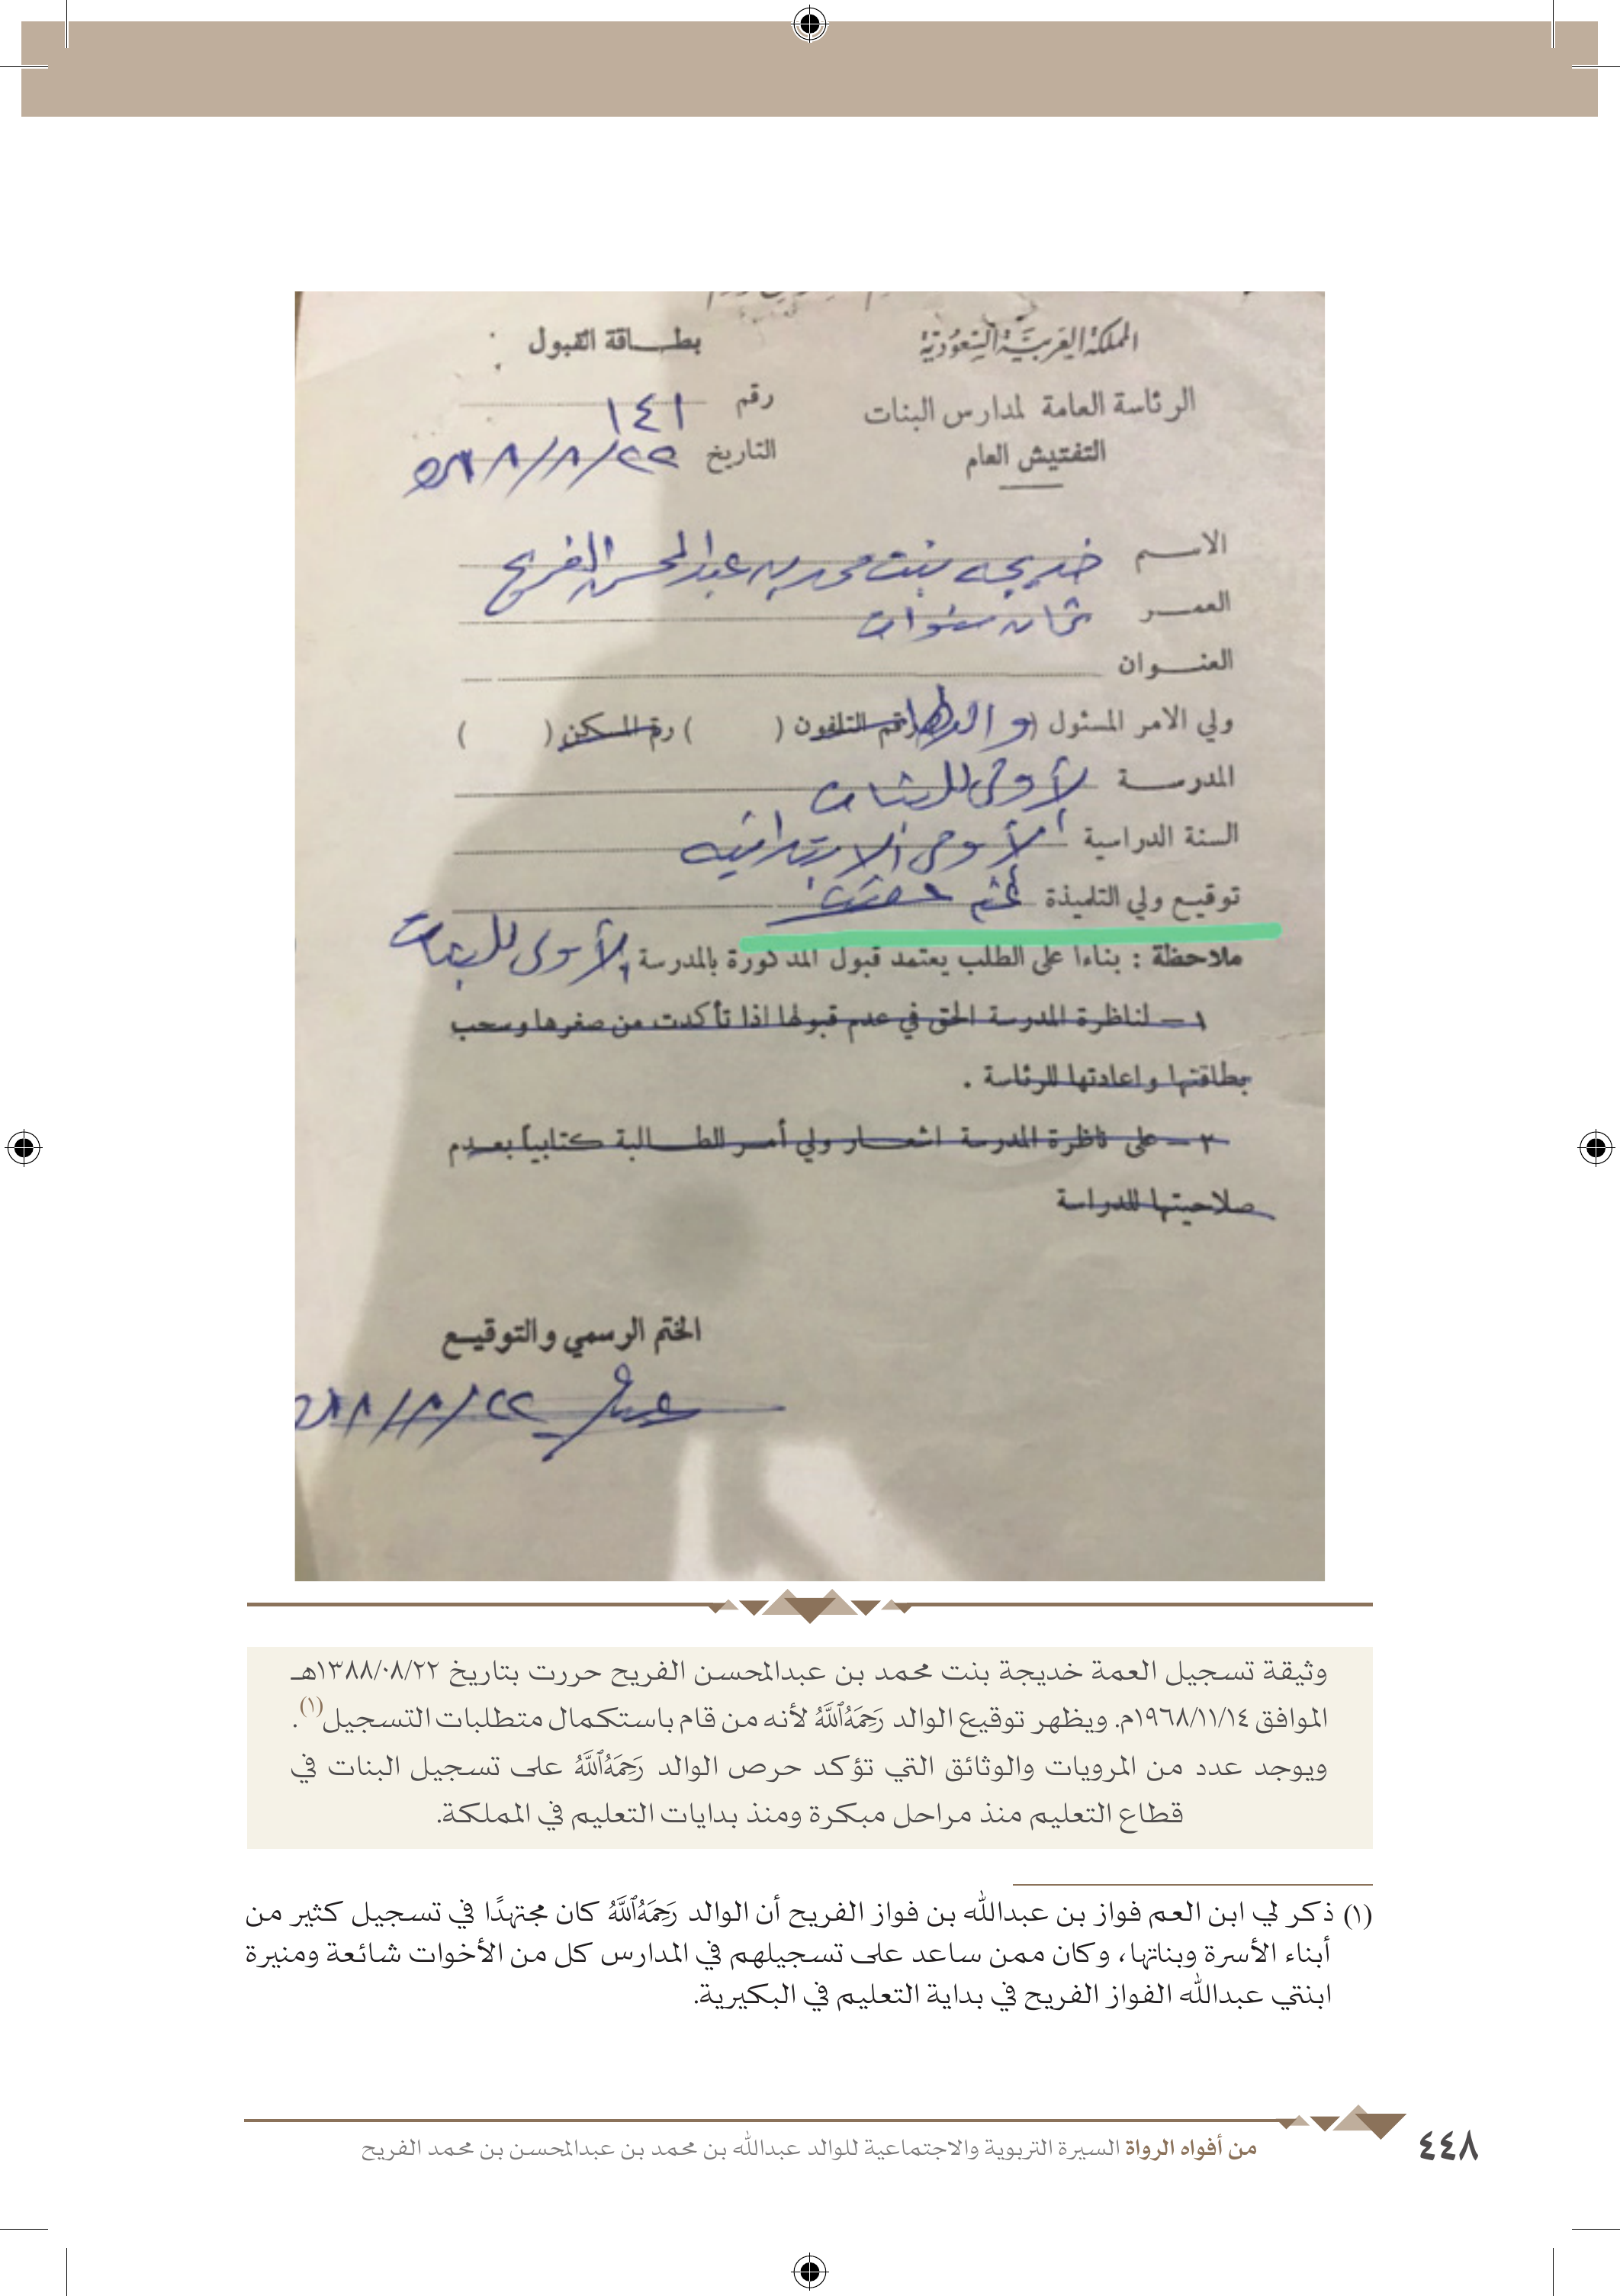 المملكة العربية السعودية
الرئاسة العامة لمدارس البنات
التفتيش العام
بطاقة القبول
رقم ١٤١
التاريخ ٢٢/٨/٨٨هـ
الاسم خديجه بنت محمد بن عبدالمحسن الفريح
العمر ثمان سنوات
العنوان
ولي الامر المسئول (والدها) رقم التلفون ( ) رقم المسكن ( )
المدرسة الأولى للبنات
السنة الدراسية الأولى الابتدائيه
توقيع ولي التلميذة
ملاحظة : بناءا على الطلب يعتمد قبول المذكورة بالمدرسة الأولى للبنات
١ – لناظرة المدرسة الحق في عدم قبولها اذا تأكدت من صغرها وسحب
بطاقتها واعادتها للرئاسة .
٢ – على ناظرة المدرسة اشعار ولي أمر الطالبة كتابياً بعدم
صلاحيتها للدراسة
الختم الرسمي والتوقيع
٢٢/٨/٨٨هـ
وثيقة تسجيل العمة خديجة بنت محمد بن عبدالمحسن الفريح حررت بتاريخ ١٣٨٨/٠٨/٢٢هـ
الموافق ١٩٦٨/١١/١٤م. ويظهر توقيع الوالد رَحِمَهُ ٱللَّهُ لأنه من قام باستكمال متطلبات التسجيل(١).
ويوجد عدد من المرويات والوثائق التي تؤكد حرص الوالد رَحِمَهُ ٱللَّهُ على تسجيل البنات في
قطاع التعليم منذ مراحل مبكرة ومنذ بدايات التعليم في المملكة.
(١) ذكر لي ابن العم فواز بن عبدالله بن فواز الفريح أن الوالد رَحِمَهُ ٱللَّهُ كان مجتهدًا في تسجيل كثير من
أبناء الأسرة وبناتها، وكان ممن ساعد على تسجيلهم في المدارس كل من الأخوات شائعة ومنيرة
ابنتي عبدالله الفواز الفريح في بداية التعليم في البكيرية.
من أفواه الرواة السيرة التربوية والاجتماعية للوالد عبدالله بن محمد بن عبدالمحسن بن محمد الفريح
٤٤٨